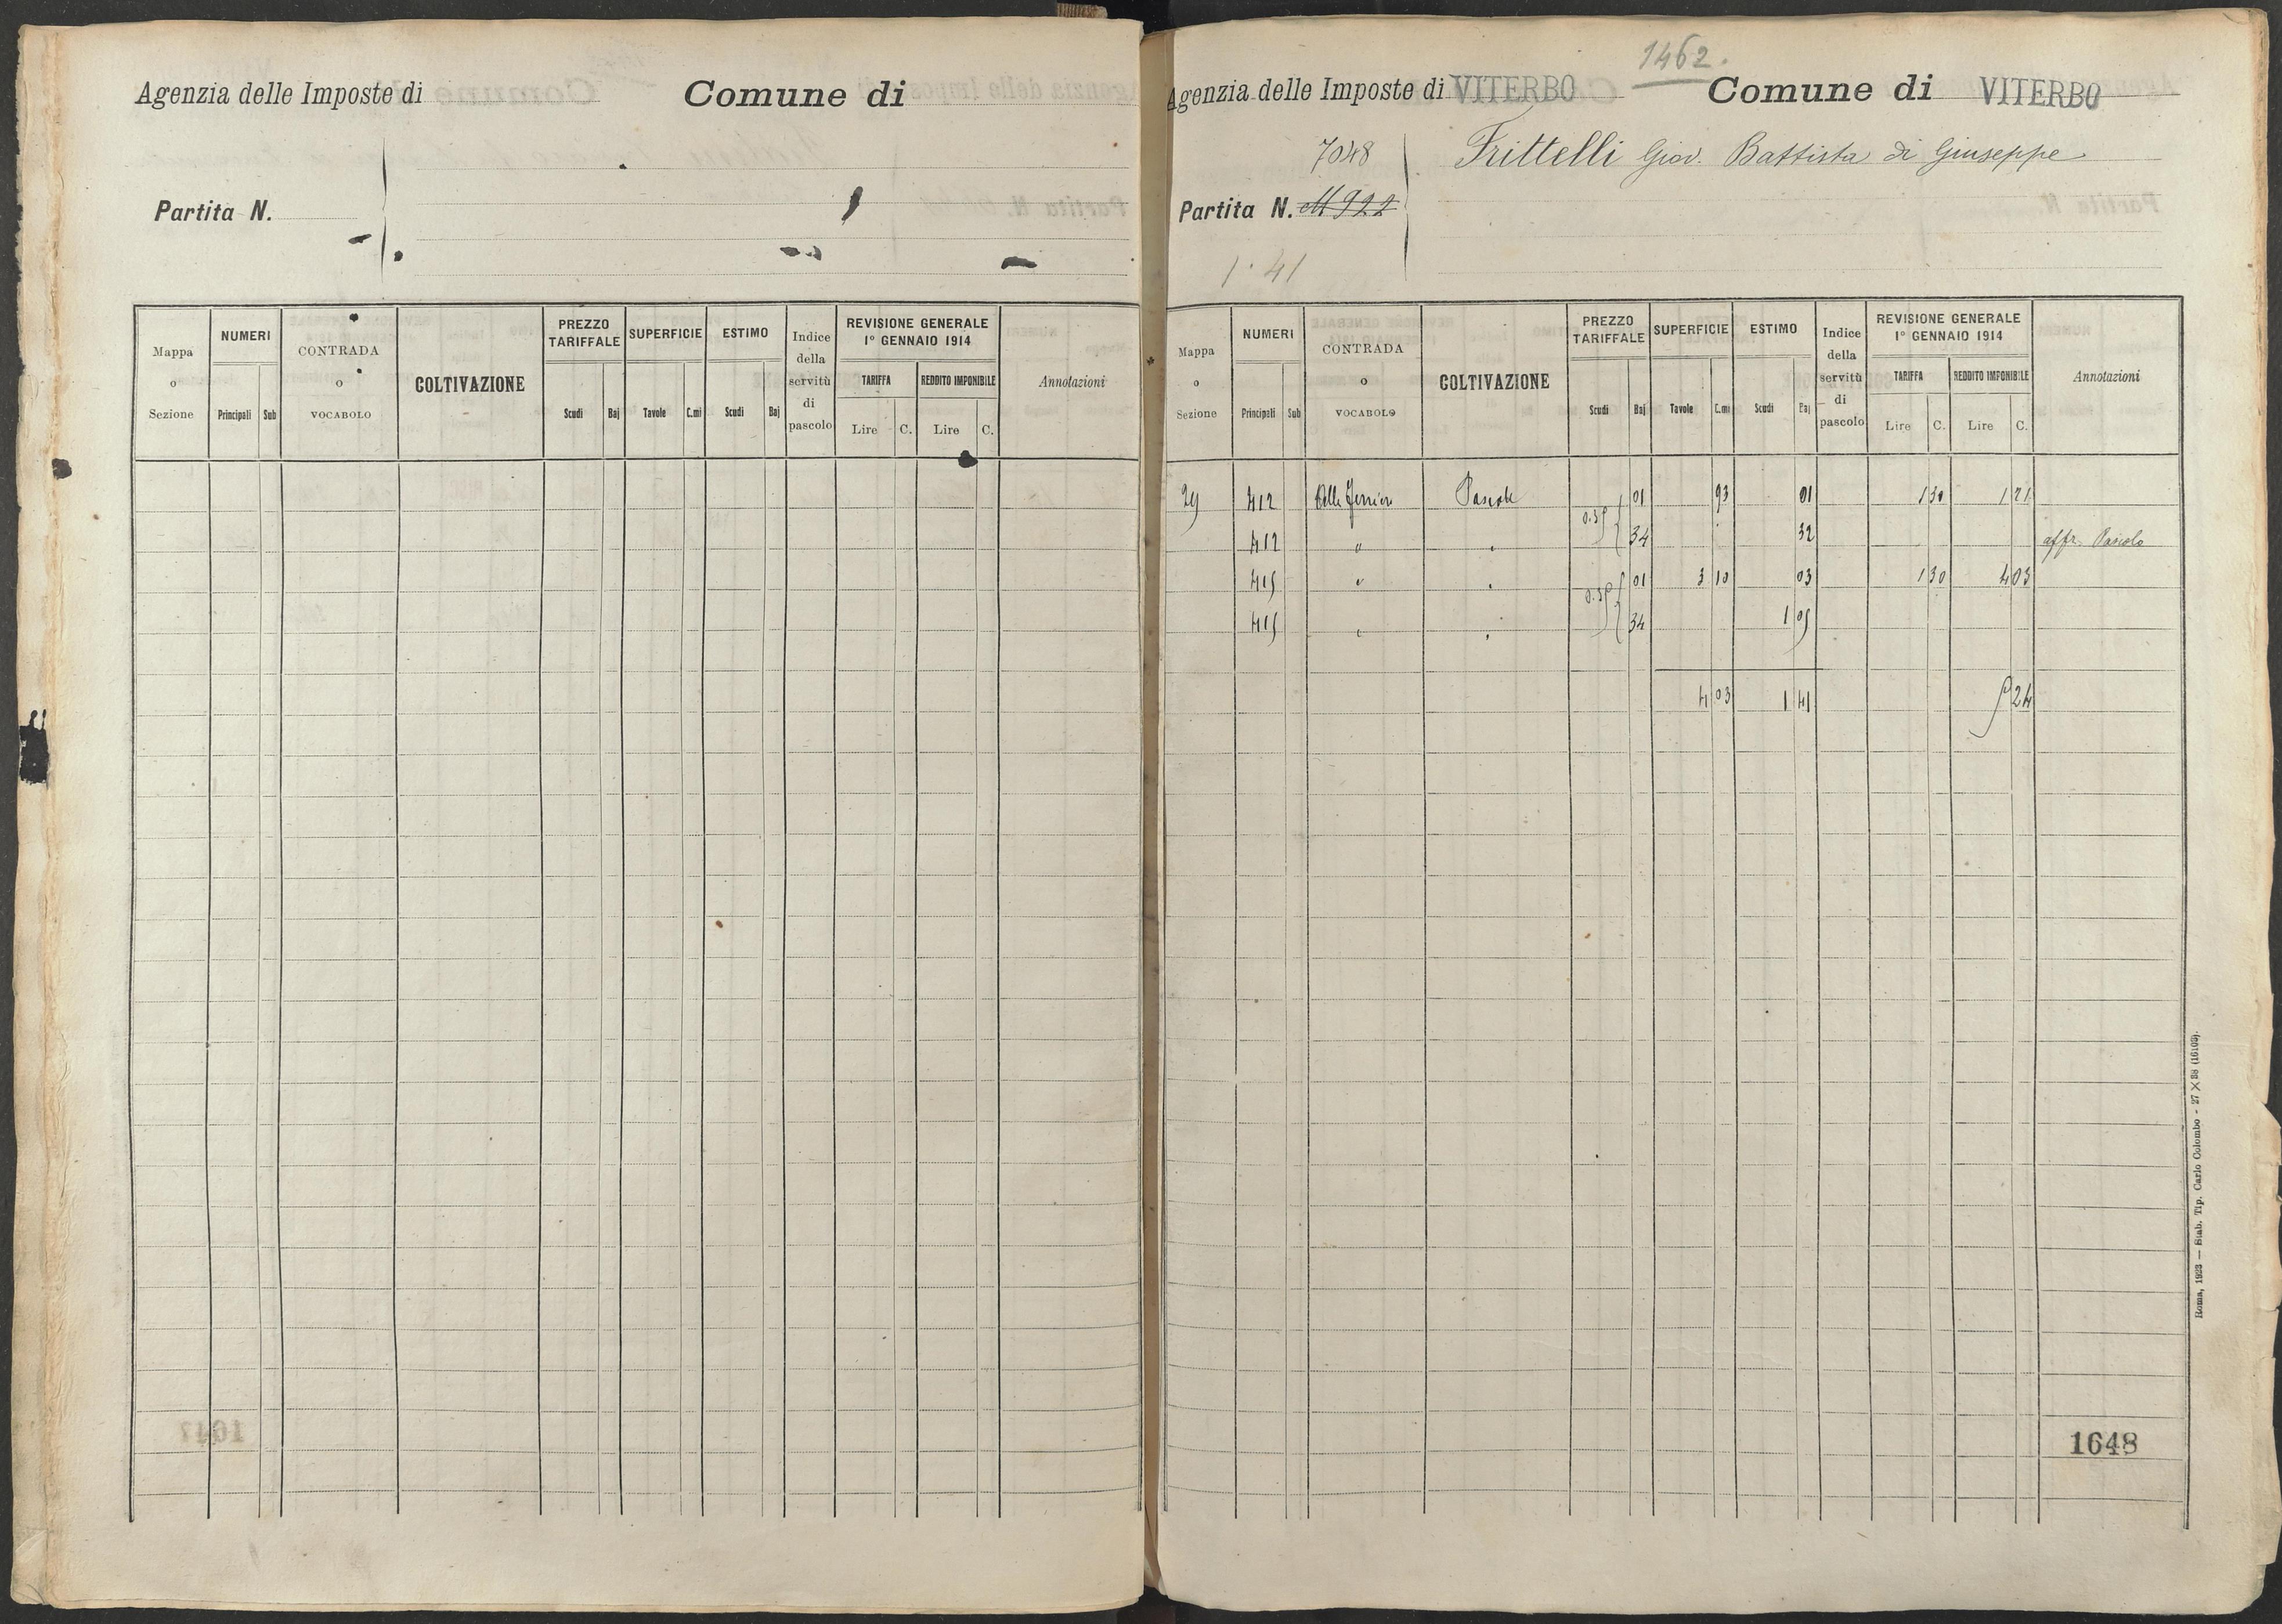 Agenzia delle Imposte di
Comune di
Partita N.
Mappa o Sezione
NUMERI
Principali Sub
CONTRADA O VOCABOLO
COLTIVAZIONE
PREZZO TARIFFALE
Scudi Baj
SUPERFICIE
Tavole C.mi
ESTIMO
Scudi Baj
Indice della servitù di pascolo
REVISIONE GENERALE
1° GENNAIO 1914
TARIFFA REDDITO IMPONIBILE
Lire C. Lire C.
Annotazioni
1462.
Agenzia delle Imposte di VITERBO Comune di VITERBO
7048 Frittelli Giov. Battista di Giuseppe
Partita N. 11922
1.41
Mappa o Sezione
NUMERI
Principali Sub
CONTRADA O VOCABOLO
COLTIVAZIONE
PREZZO TARIFFALE
Scudi Baj
SUPERFICIE
Tavole C.mi
ESTIMO
Scudi Baj
Indice della servitù di pascolo
REVISIONE GENERALE
1° GENNAIO 1914
TARIFFA REDDITO IMPONIBILE
Lire C. Lire C.
Annotazioni
29 412 01 93 01 1 30 1 21
412 " 34 32 affr. Pascolo
415 " 01 3 10 03 1 30 4 03
415 34 1 05
4 03 1 41 5 24
1648
Roma, 1923 — Stab. Tip. Carlo Colombo - 27 X 38 (16103).